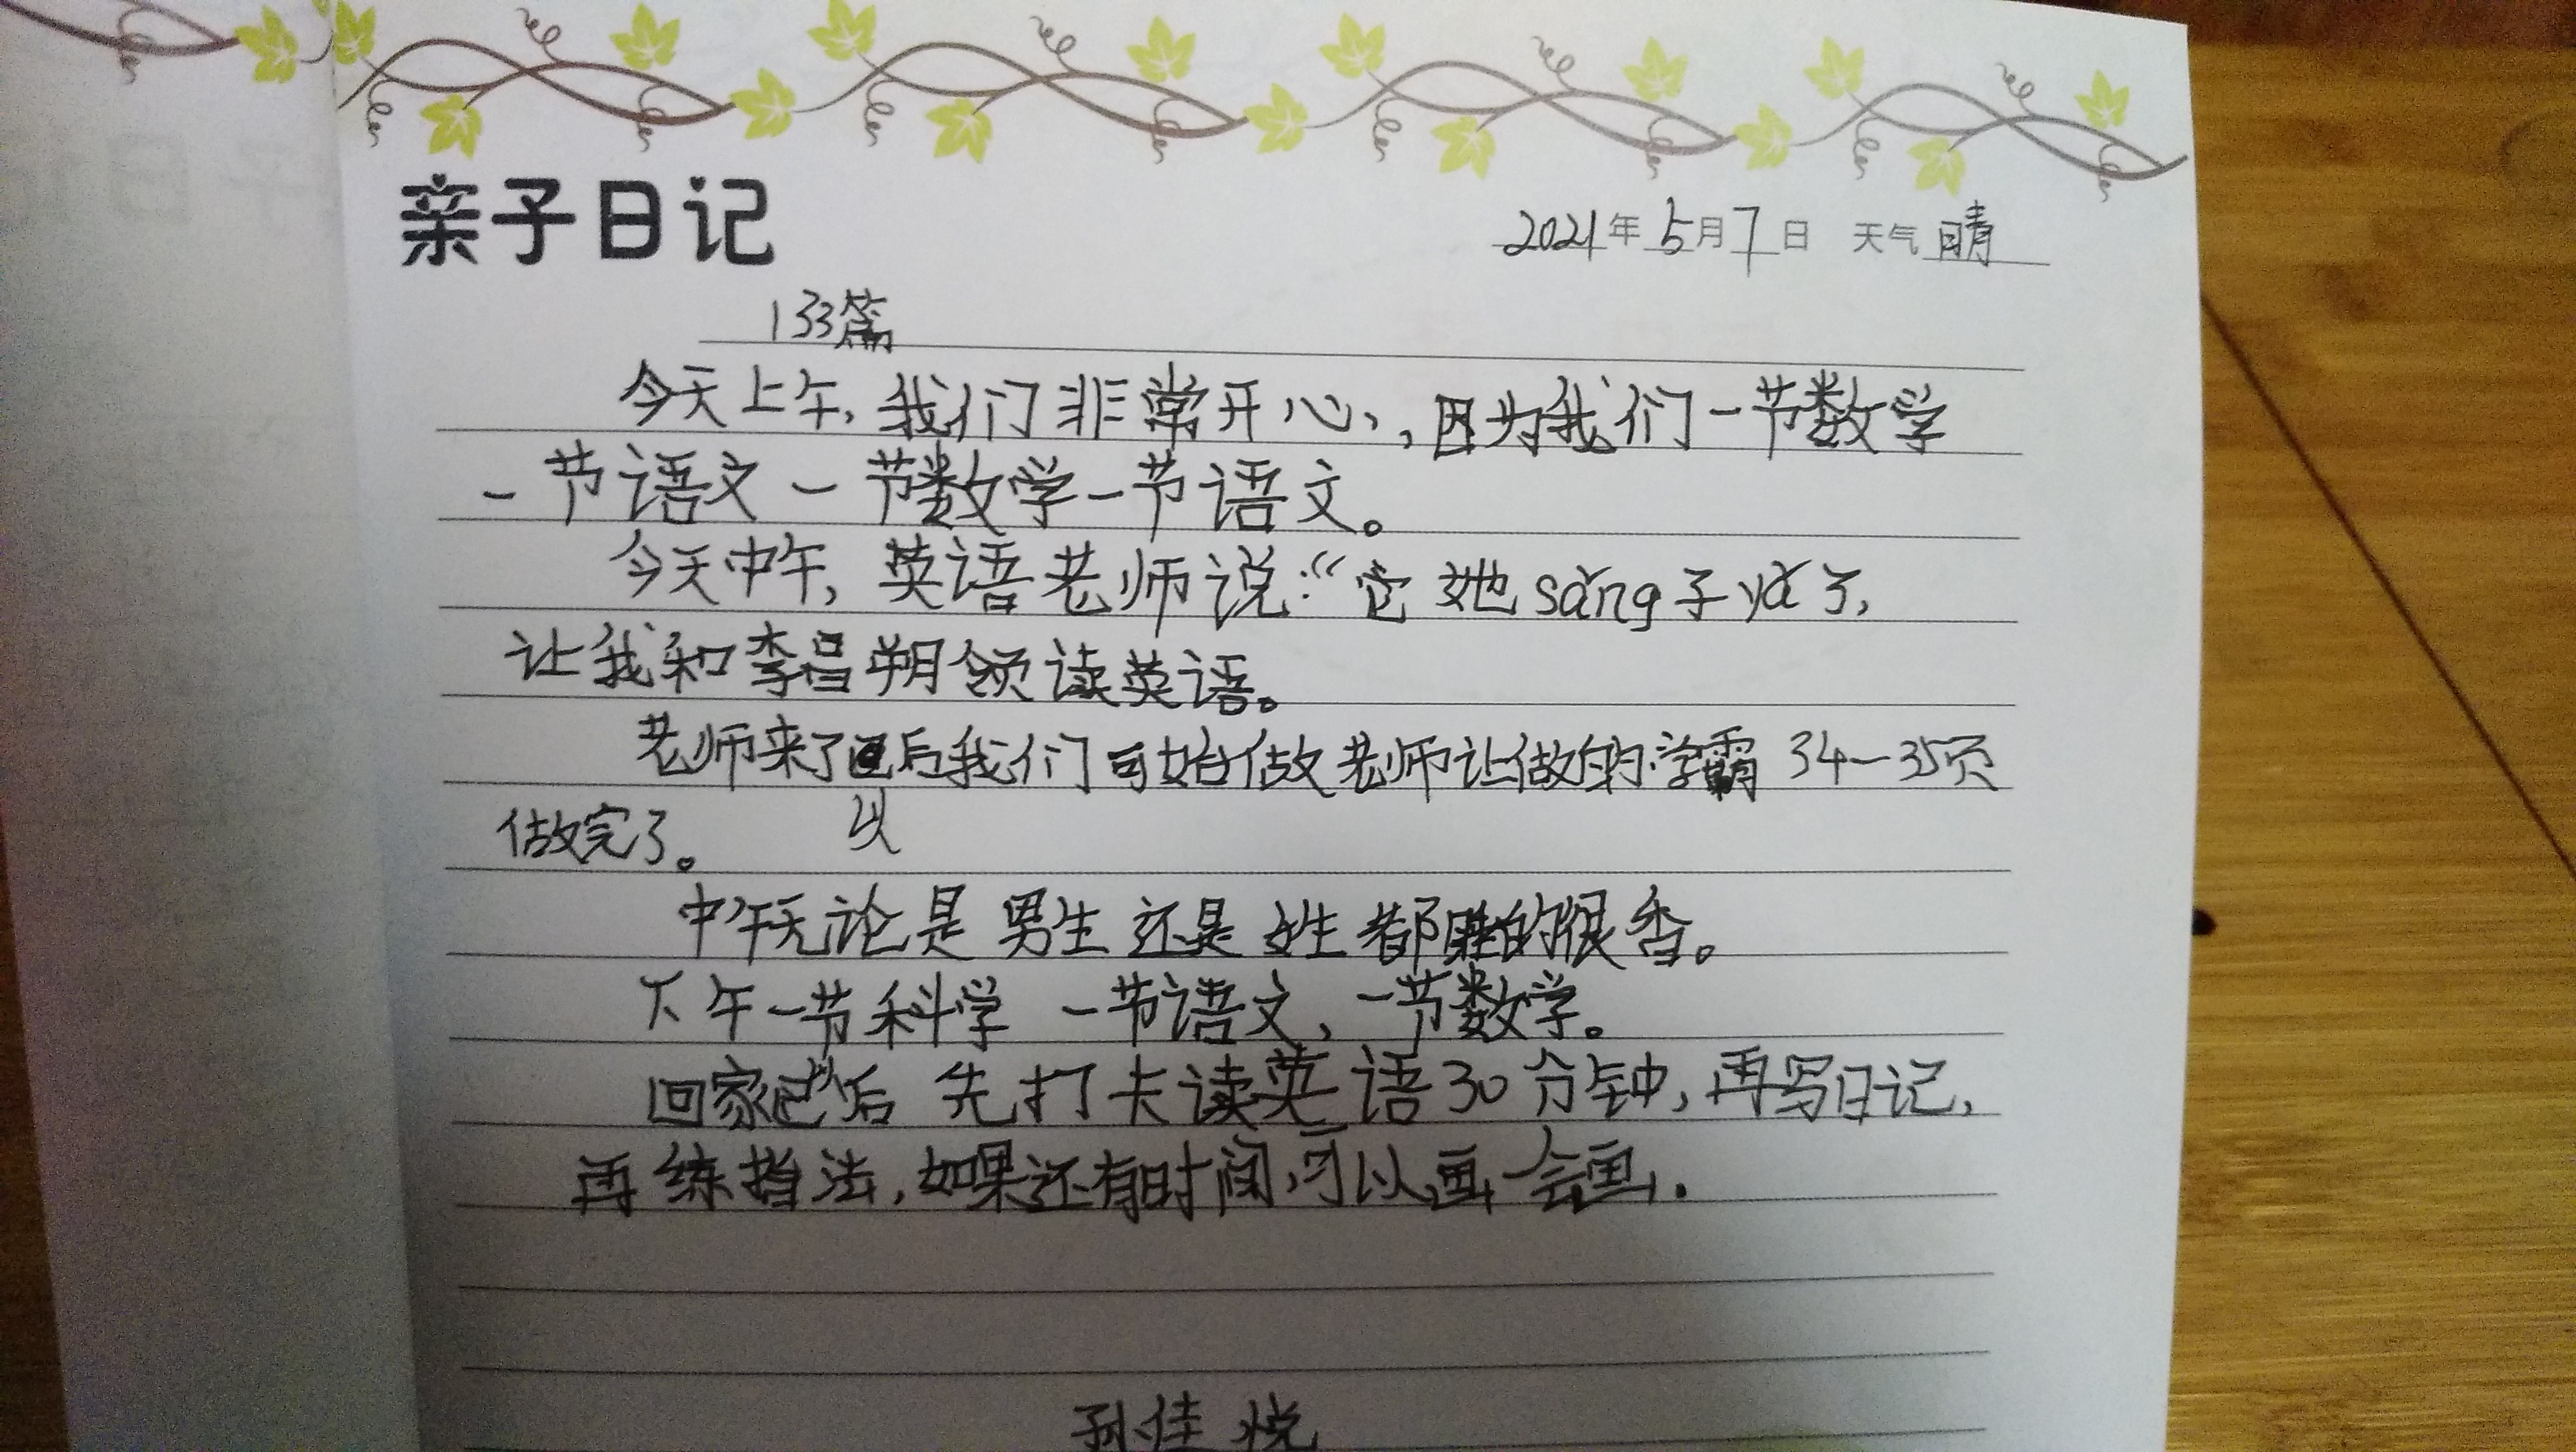 亲子日记
2021年5月7日 天气晴
133篇
今天上午,我们非常开心,,因为我们一节数学
一节语文一节数学一节语文。
今天中午,英语老师说:“它她sǎng子yǎ了,
让我和李昌朔领读英语。
老师来了后我们可始做老师让做的学霸34—35页
做完了。 以
中午无论是男生还是女生都睡的很香。
下午一节科学 一节语文,一节数学。
回家以后 先打卡读英语30分钟,再写日记,
再练指法,如果还有时间,可以画一会画.
孙佳悦